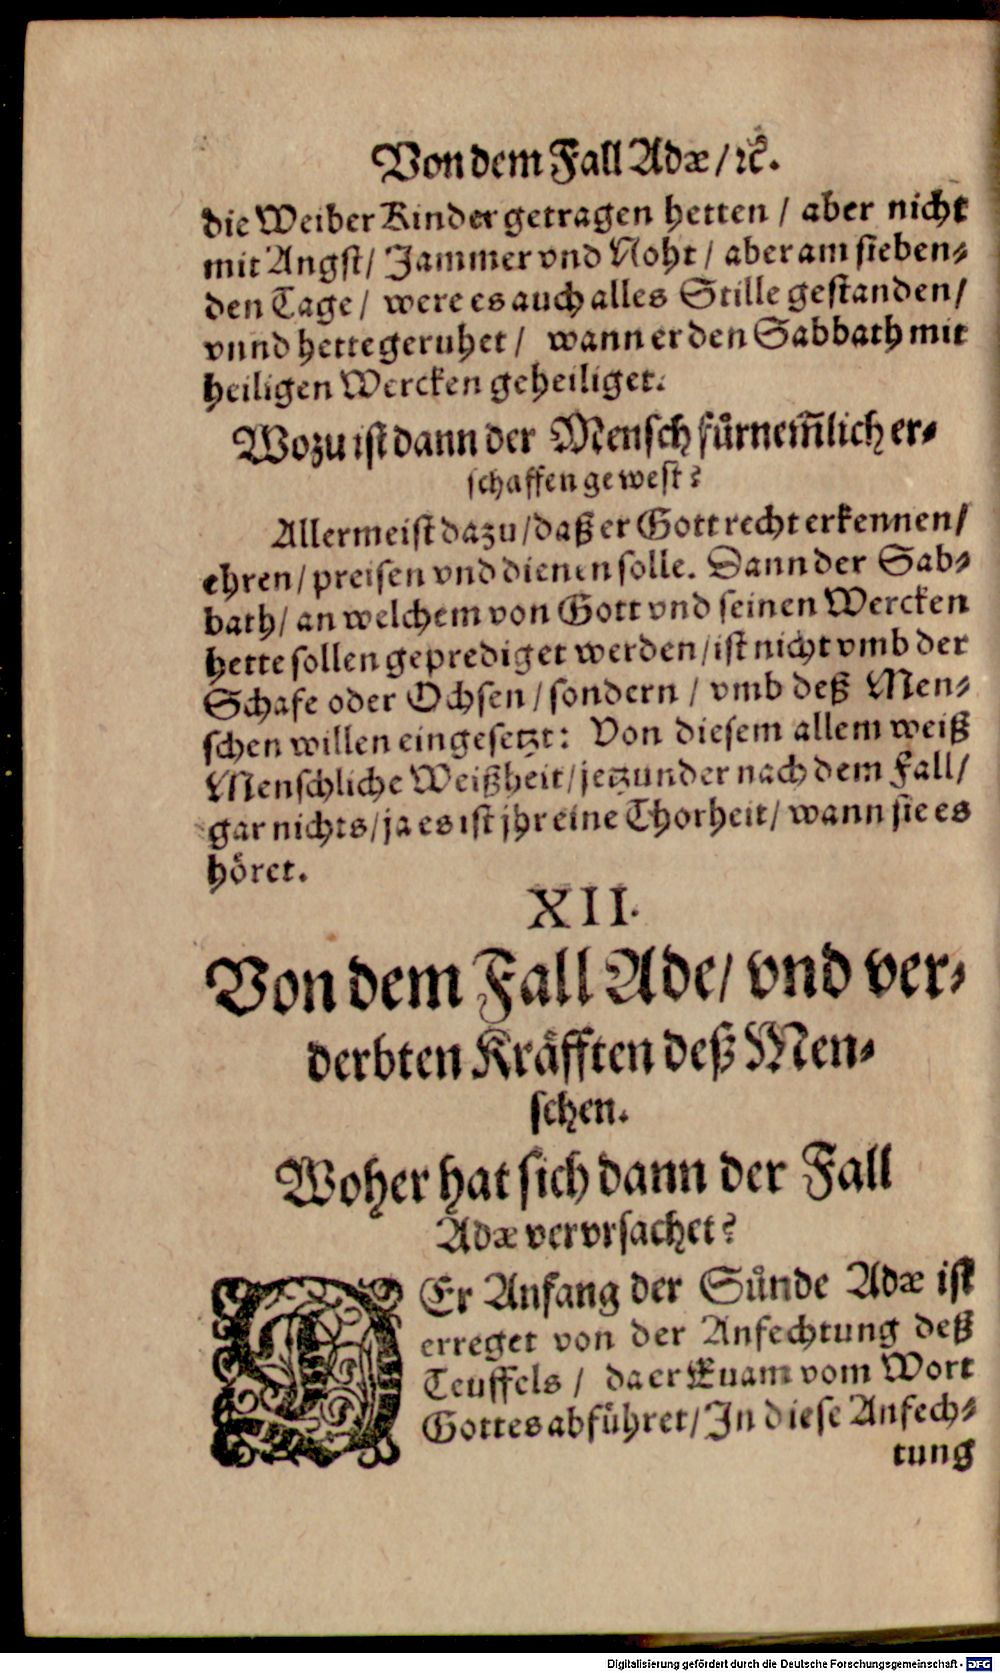 Von dem Fall Adæ / ꝛc.
die Weiber Kinder getragen hetten / aber nicht
mit Angst / Jammer vnd Noht / aber am sieben-
den Tage / were es auch alles Stille gestanden /
vnnd hette geruhet / wann er den Sabbath mit
heiligen Wercken geheiliget.
Wozu ist dann der Mensch fürnem̃lich er-
schaffen gewest?
Allermeist dazu / daß er Gott recht erkennen /
ehren / preisen vnd dienen solle. Dann der Sab-
bath / an welchem von Gott vnd seinen Wercken
hette sollen geprediget werden / ist nicht vmb der
Schafe oder Ochsen / sondern / vmb deß Men-
schen willen eingesetzt: Von diesem allem weiß
Menschliche Weißheit / jetzunder nach dem Fall /
gar nichts / ja es ist jhr eine Thorheit / wann sie es
höret.
XII.
Von dem Fall Ade / vnd ver-
derbten Kräfften deß Men-
schen.
Woher hat sich dann der Fall
Adæ vervrsachet?
DEr Anfang der Sünde Adæ ist
erreget von der Anfechtung deß
Teuffels / da er Euam vom Wort
Gottes abführet / In diese Anfech-
tung
Digitalisierung gefördert durch die Deutsche Forschungsgemeinschaft - DFG